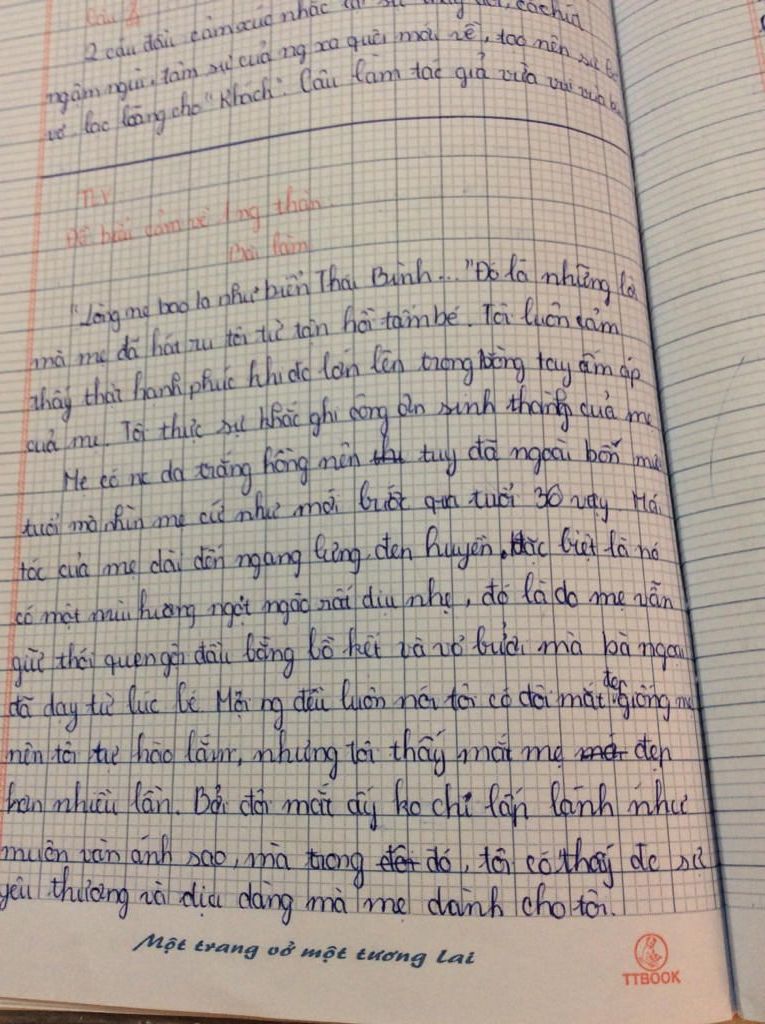 Câu 2
2 câu đầu cảm xúc nhắc lại sự
ngậm ngùi, tâm sự của ng xa quê mới về, tạo nên sự
vơ lạc lõng cho "khách". Câu làm tác giả vừa vui vừa
TLV
Đề bài cảm về 1 ng thân.
Bài làm
"Lòng mẹ bao la như biển Thái Bình..." Đó là những lời
mà mẹ đã hát ru tôi từ tận hồi tấm bé. Tôi luôn cảm
thấy thật hạnh phúc khi đc lớn lên trong vòng tay ấm áp
của mẹ. Tôi thực sự khắc ghi công ơn sinh thành của mẹ
Mẹ có nc da trắng hồng nên tuy đã ngoài bốn mươi
tuổi mà nhìn mẹ cứ như mới bướt qua tuổi 30 vậy. Mái
tóc của mẹ dài đến ngang lưng, đen huyền, đặc biệt là nó
có một mùi hương ngọt ngào rất dịu nhẹ, đó là do mẹ vẫn
giữ thói quen gội đầu bằng bồ kết và vỏ bưởi mà bà ngoại
đã dạy từ lúc bé. Mọi ng đều luôn nói tôi có đôi mắt đẹp giống mẹ
nên tôi tự hào lắm, nhưng tôi thấy mắt mẹ đẹp
hơn nhiều lần. Bởi đôi mắt ấy ko chỉ lấp lánh như
muôn vàn ánh sao, mà trong đó, tôi có thấy đc sự
yêu thương và dịu dàng mà mẹ dành cho tôi.
Một trang vở một tương lai
TTBOOK